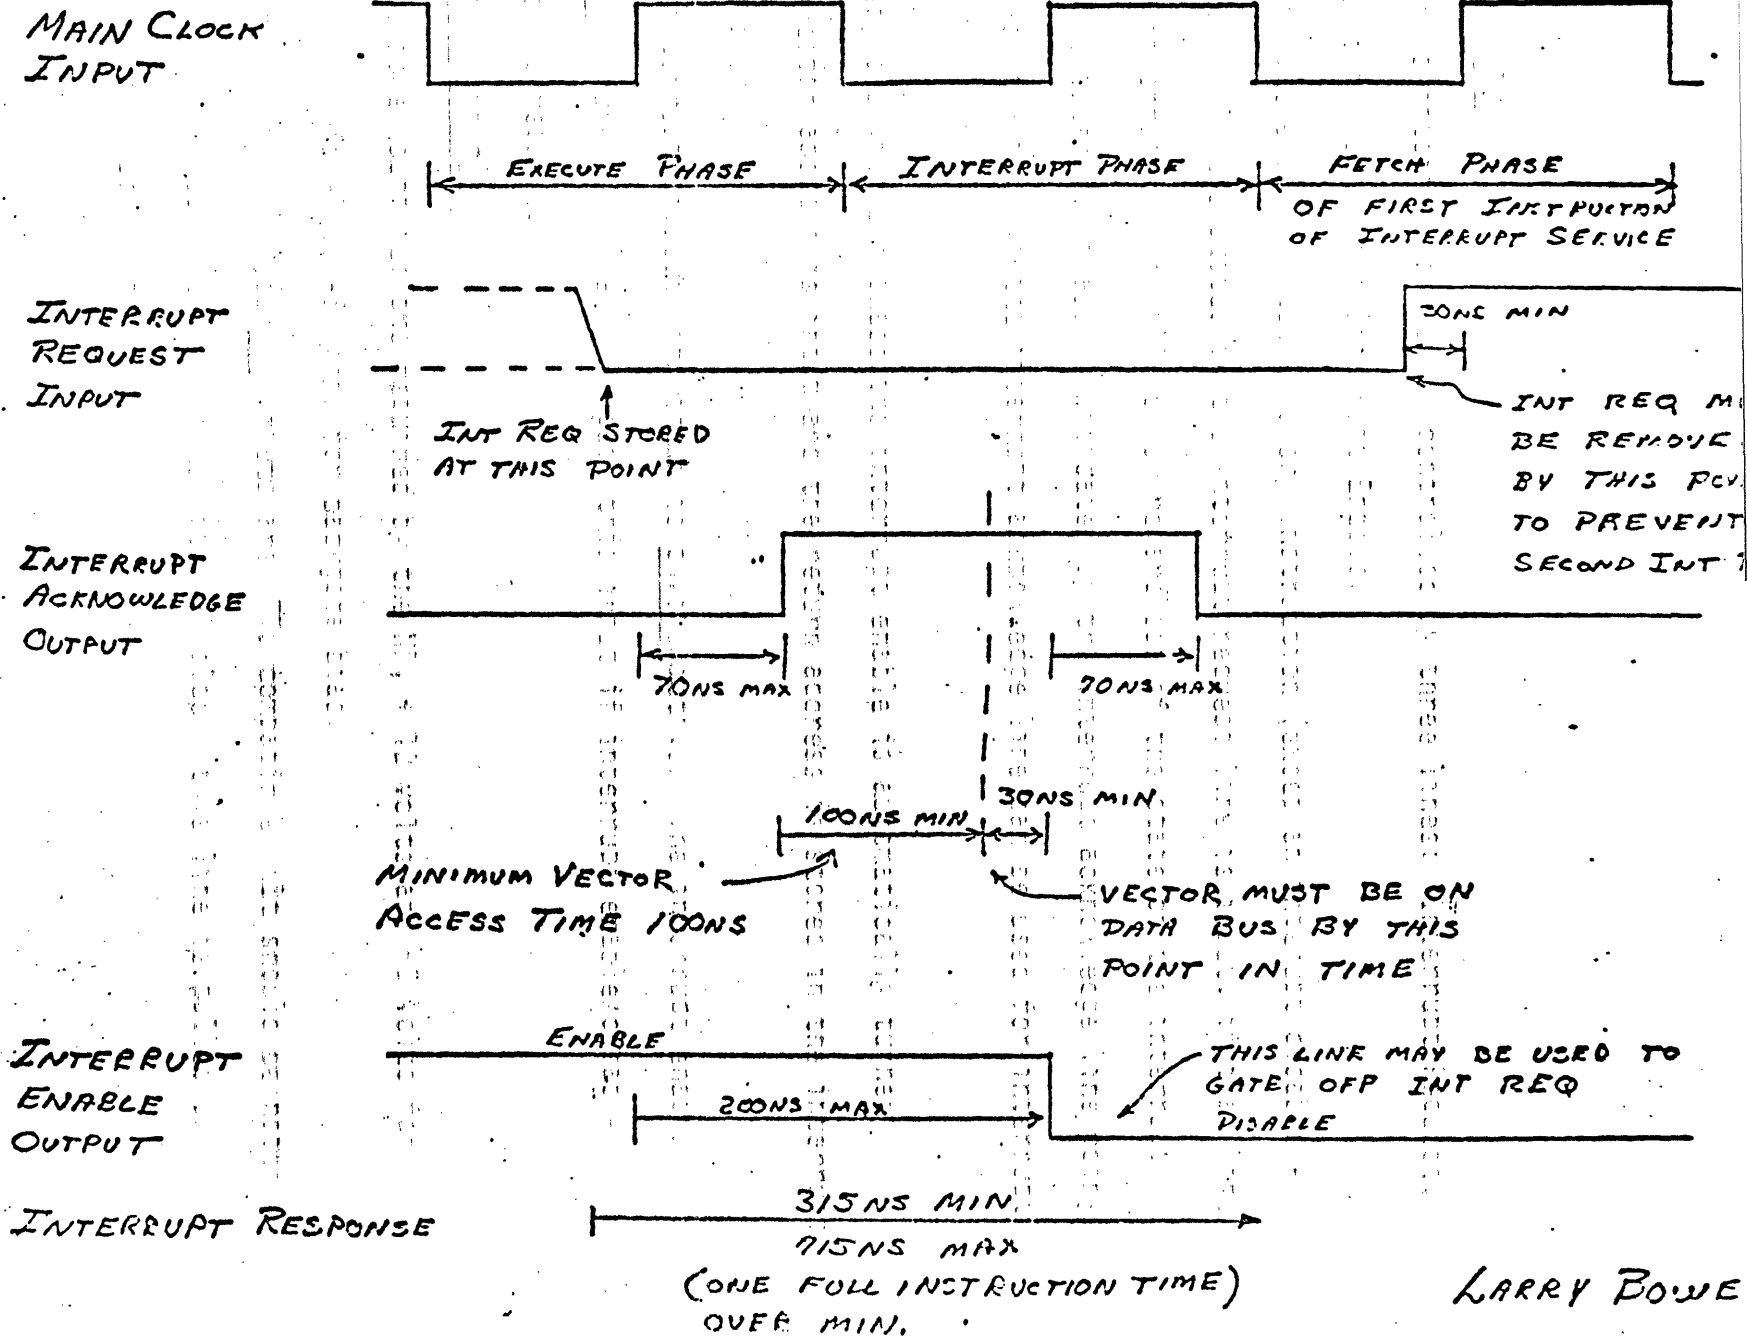 MAIN CLOCK
INPUT
EXECUTE PHASE
INTERRUPT PHASE
FETCH PHASE
OF FIRST INSTRUCTION
OF INTERRUPT SERVICE
INTERRUPT
REQUEST
INPUT
INT REQ STORED
AT THIS POINT
30NS MIN
INT REQ
BE REMOVE
BY THIS
TO PREVENT
SECOND INT
INTERRUPT
ACKNOWLEDGE
OUTPUT
70NS MAX
70NS MAX
100NS MIN
30NS MIN
MINIMUM VECTOR
ACCESS TIME 100NS
VECTOR MUST BE ON
DATA BUS BY THIS
POINT IN TIME
INTERRUPT
ENABLE
OUTPUT
ENABLE
200NS MAX
THIS LINE MAY BE USED TO
GATE OFF INT REQ
DISABLE
INTERRUPT RESPONSE
315NS MIN
715NS MAX
(ONE FULL INSTRUCTION TIME)
OVER MIN.
LARRY BOWE